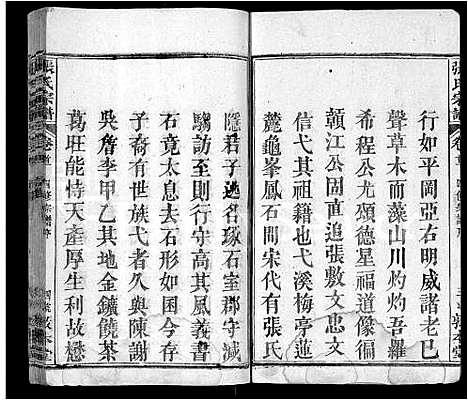 張氏宗譜
卷首
行如平岡亞右明威諸老巳
聲草木而藻山川灼灼吾羅
希程公尤頌德星福道像徊
贛江公固直追張敷文忠文
信弋其祖籍也弋溪梅亭蓮
麓龜峯鳳石間宋代有張氏
隱君子逸名琢石室郡守減
騶訪行守高其風義書
石竟太息去石形如困今存
子裔有世族弋者久與陳謝
吳詹李甲乙其地金鑛饒茶
萬旺能恃天產厚生利故懋
張氏宗譜
卷首